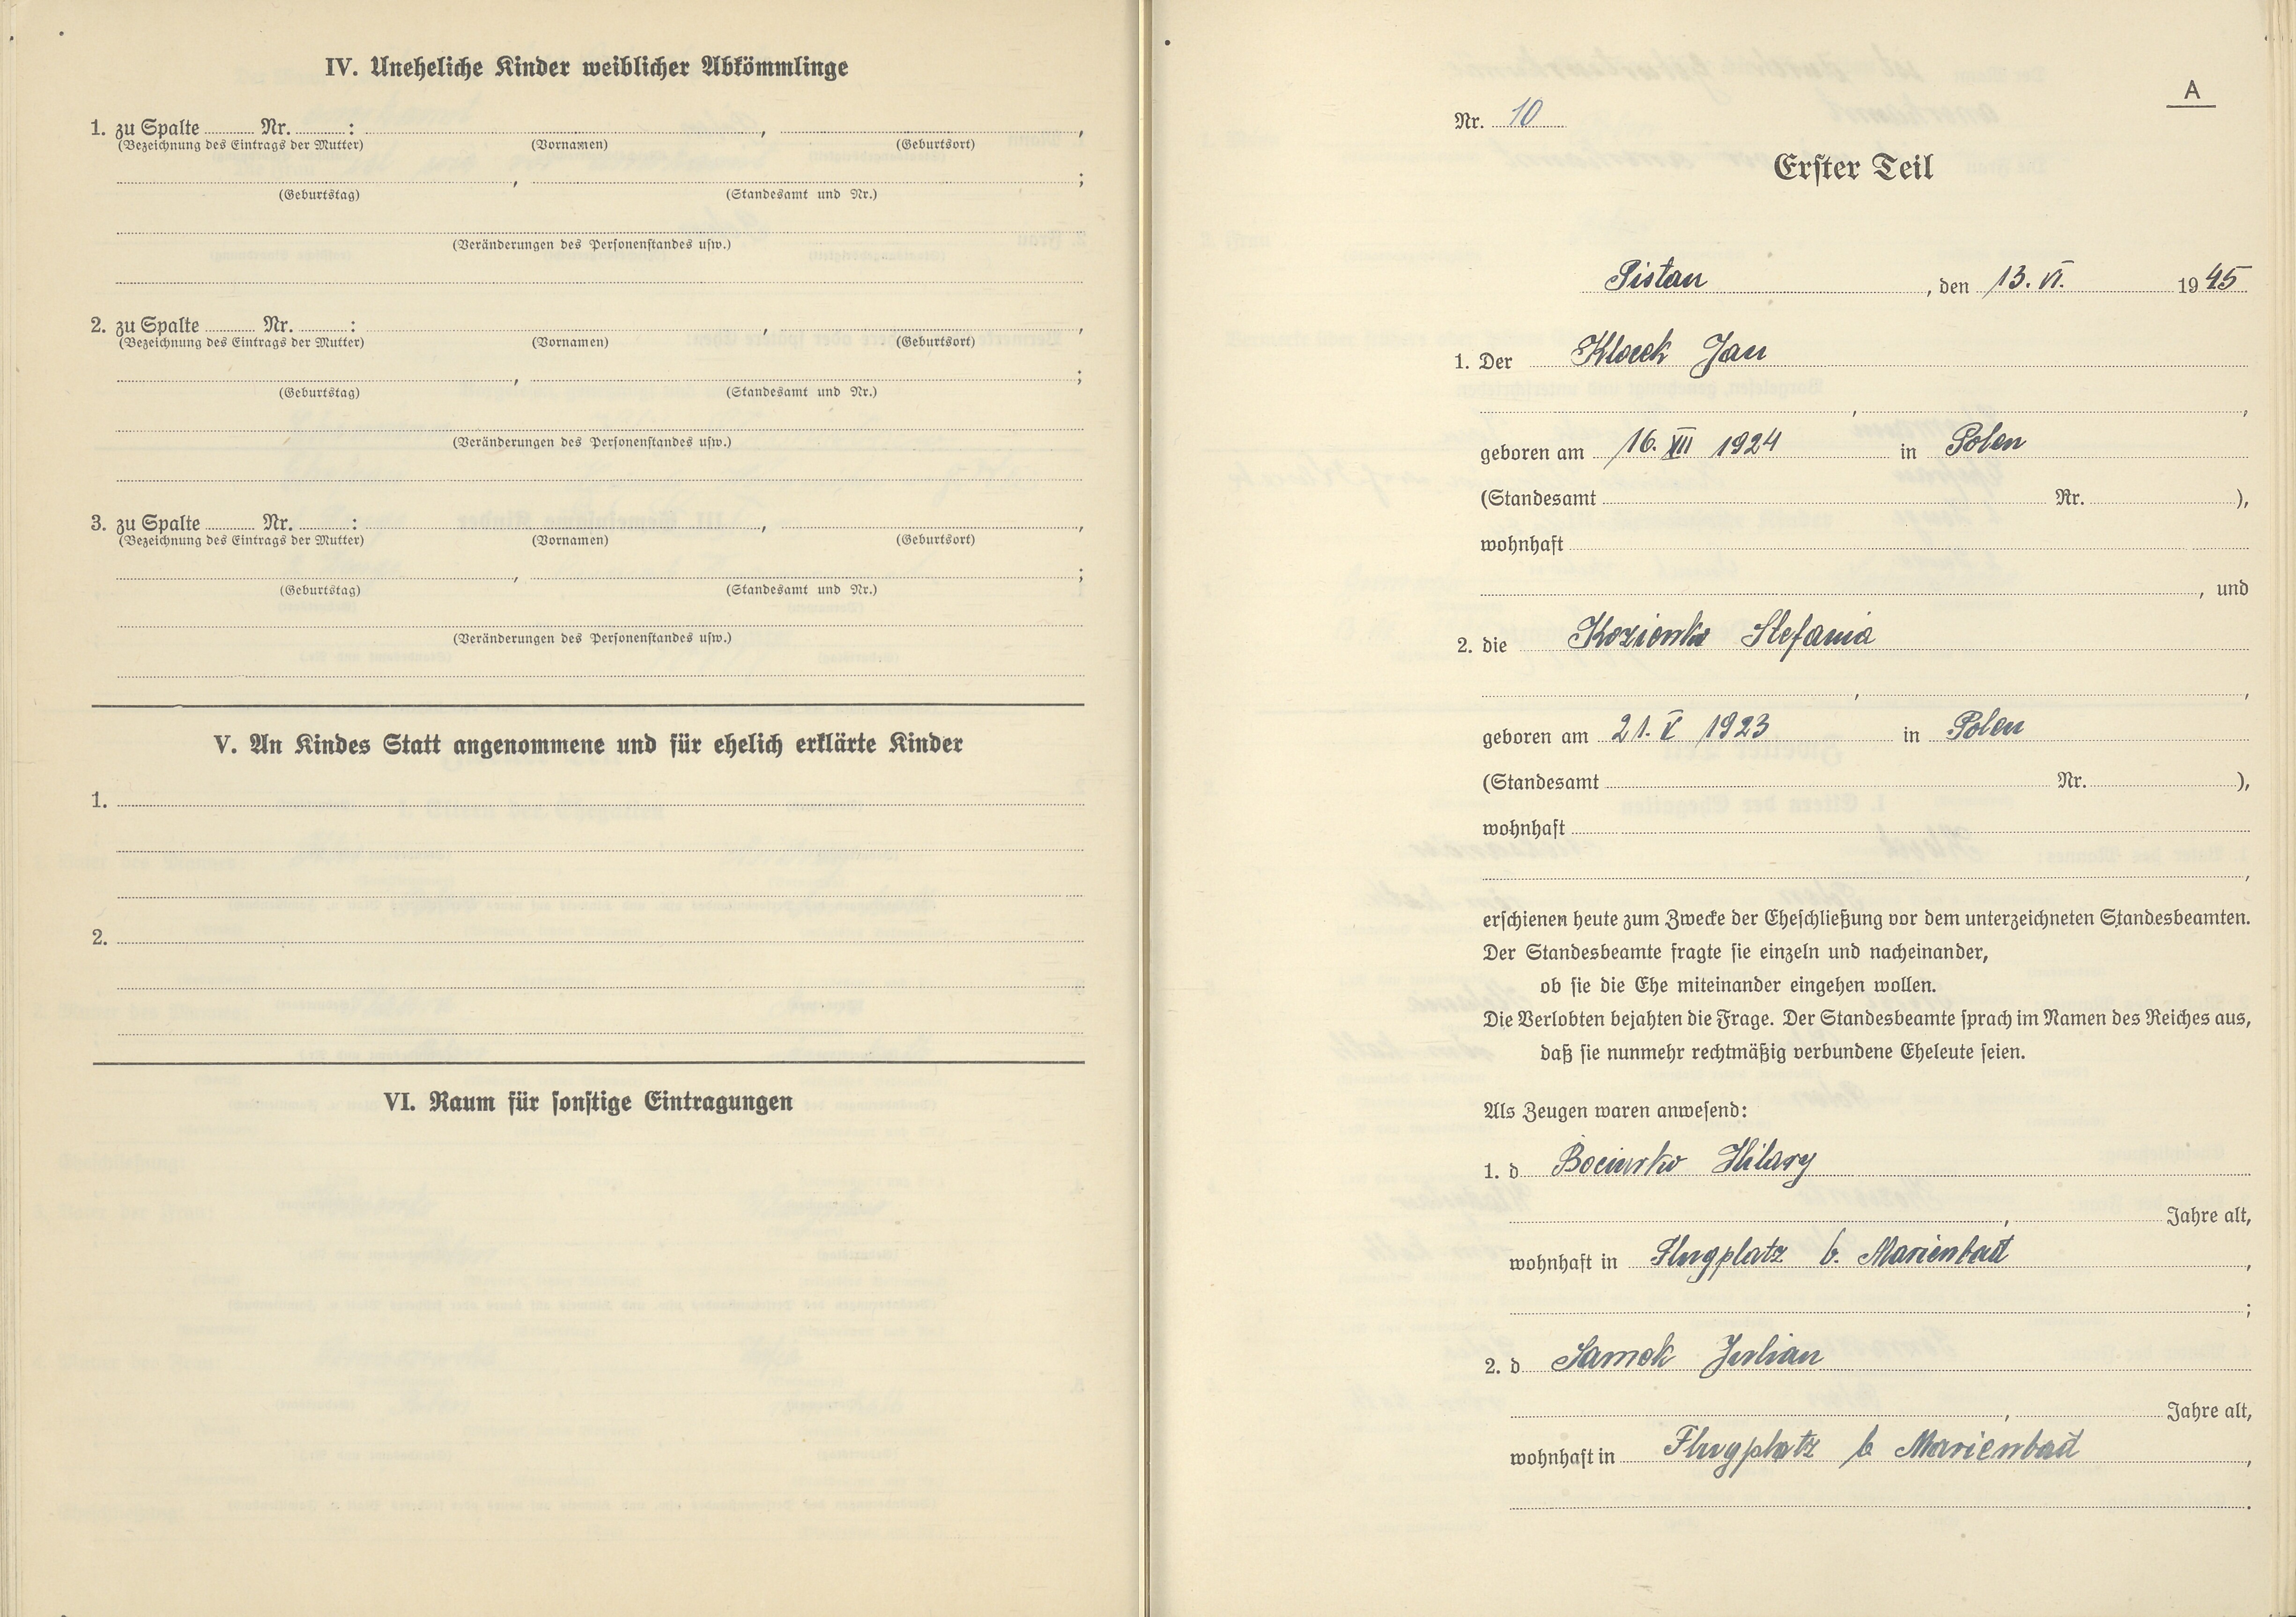 IV. Uneheliche Kinder weiblicher Abkömmlinge
1. zu Spalte Nr. : , ,
(Bezeichnung des Eintrags der Mutter) (Vornamen) (Geburtsort)
, ;
(Geburtstag) (Standesamt und Nr.)
(Veränderungen des Personenstandes usw.)
2. zu Spalte Nr. : , ,
(Bezeichnung des Eintrags der Mutter) (Vornamen) (Geburtsort)
, ;
(Geburtstag) (Standesamt und Nr.)
(Veränderungen des Personenstandes usw.)
3. zu Spalte Nr. : , ,
(Bezeichnung des Eintrags der Mutter) (Vornamen) (Geburtsort)
, ;
(Geburtstag) (Standesamt und Nr.)
(Veränderungen des Personenstandes usw.)
V. An Kindes Statt angenommene und für ehelich erklärte Kinder
1.
2.
VI. Raum für sonstige Eintragungen
A
Nr. 10
Erster Teil
Pistau, den 13. VI. 1945
1. Der Klocek Jan
, ,
geboren am 16. XII 1924 in Polen
(Standesamt Nr. ),
wohnhaft
, und
2. die Stefania
, ,
geboren am 21. V 1923 in Polen
(Standesamt Nr. ),
wohnhaft
,
erschienen heute zum Zwecke der Eheschließung vor dem unterzeichneten Standesbeamten.
Der Standesbeamte fragte sie einzeln und nacheinander,
ob sie die Ehe miteinander eingehen wollen.
Die Verlobten bejahten die Frage. Der Standesbeamte sprach im Namen des Reiches aus,
daß sie nunmehr rechtmäßig verbundene Eheleute seien.
Als Zeugen waren anwesend:
1. d Hilary
, Jahre alt,
wohnhaft in Flugplatz b. Marienbad,
;
2. d Samek Julian
, Jahre alt,
wohnhaft in Flugplatz b Marienbad,
.